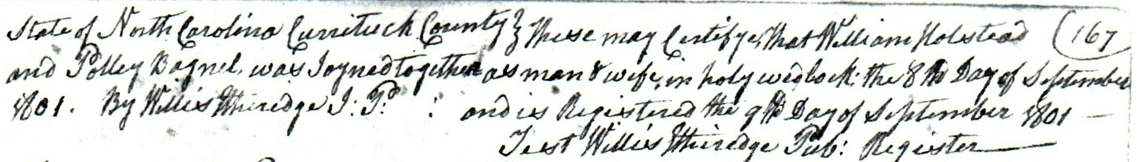 State of North Carolina Currituck County } These may Certifye That William Holstead (167)
and Polley Bagnel, was Joyned together as man & wife, in holy wedlock the 8th Day of September
1801. By Willis Etheredge J: P: : and is Registered the 9th Day of September 1801 —
Test Willis Etheredge Pub: Register —